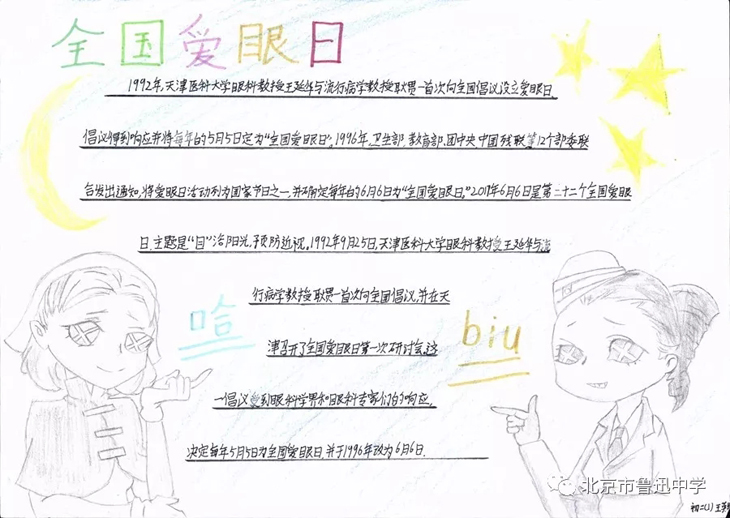 全国爱眼日
1992年,天津医科大学眼科教授王延华与流行病学教授耿贯一首次向全国倡议设立爱眼日,
倡议得到响应并将每年的5月5日定为“全国爱眼日”。1996年,卫生部、教育部、团中央、中国残联等12个部委联
合发出通知,将爱眼日活动列为国家节日之一,并确定每年的6月6日为“全国爱眼日。”2017年6月6日是第二十二个全国爱眼
日,主题是“目”浴阳光,预防近视。1992年9月25日,天津医科大学眼科教授王延华与流
行病学教授耿贯一首次向全国倡议,并在天
津召开了全国爱眼日第一次研讨会,这
一倡议受到眼科学界和眼科专家们的响应,
决定每年5月5日为全国爱眼日,并于1996年改为6月6日.
biu
北京市鲁迅中学
初二(1)王